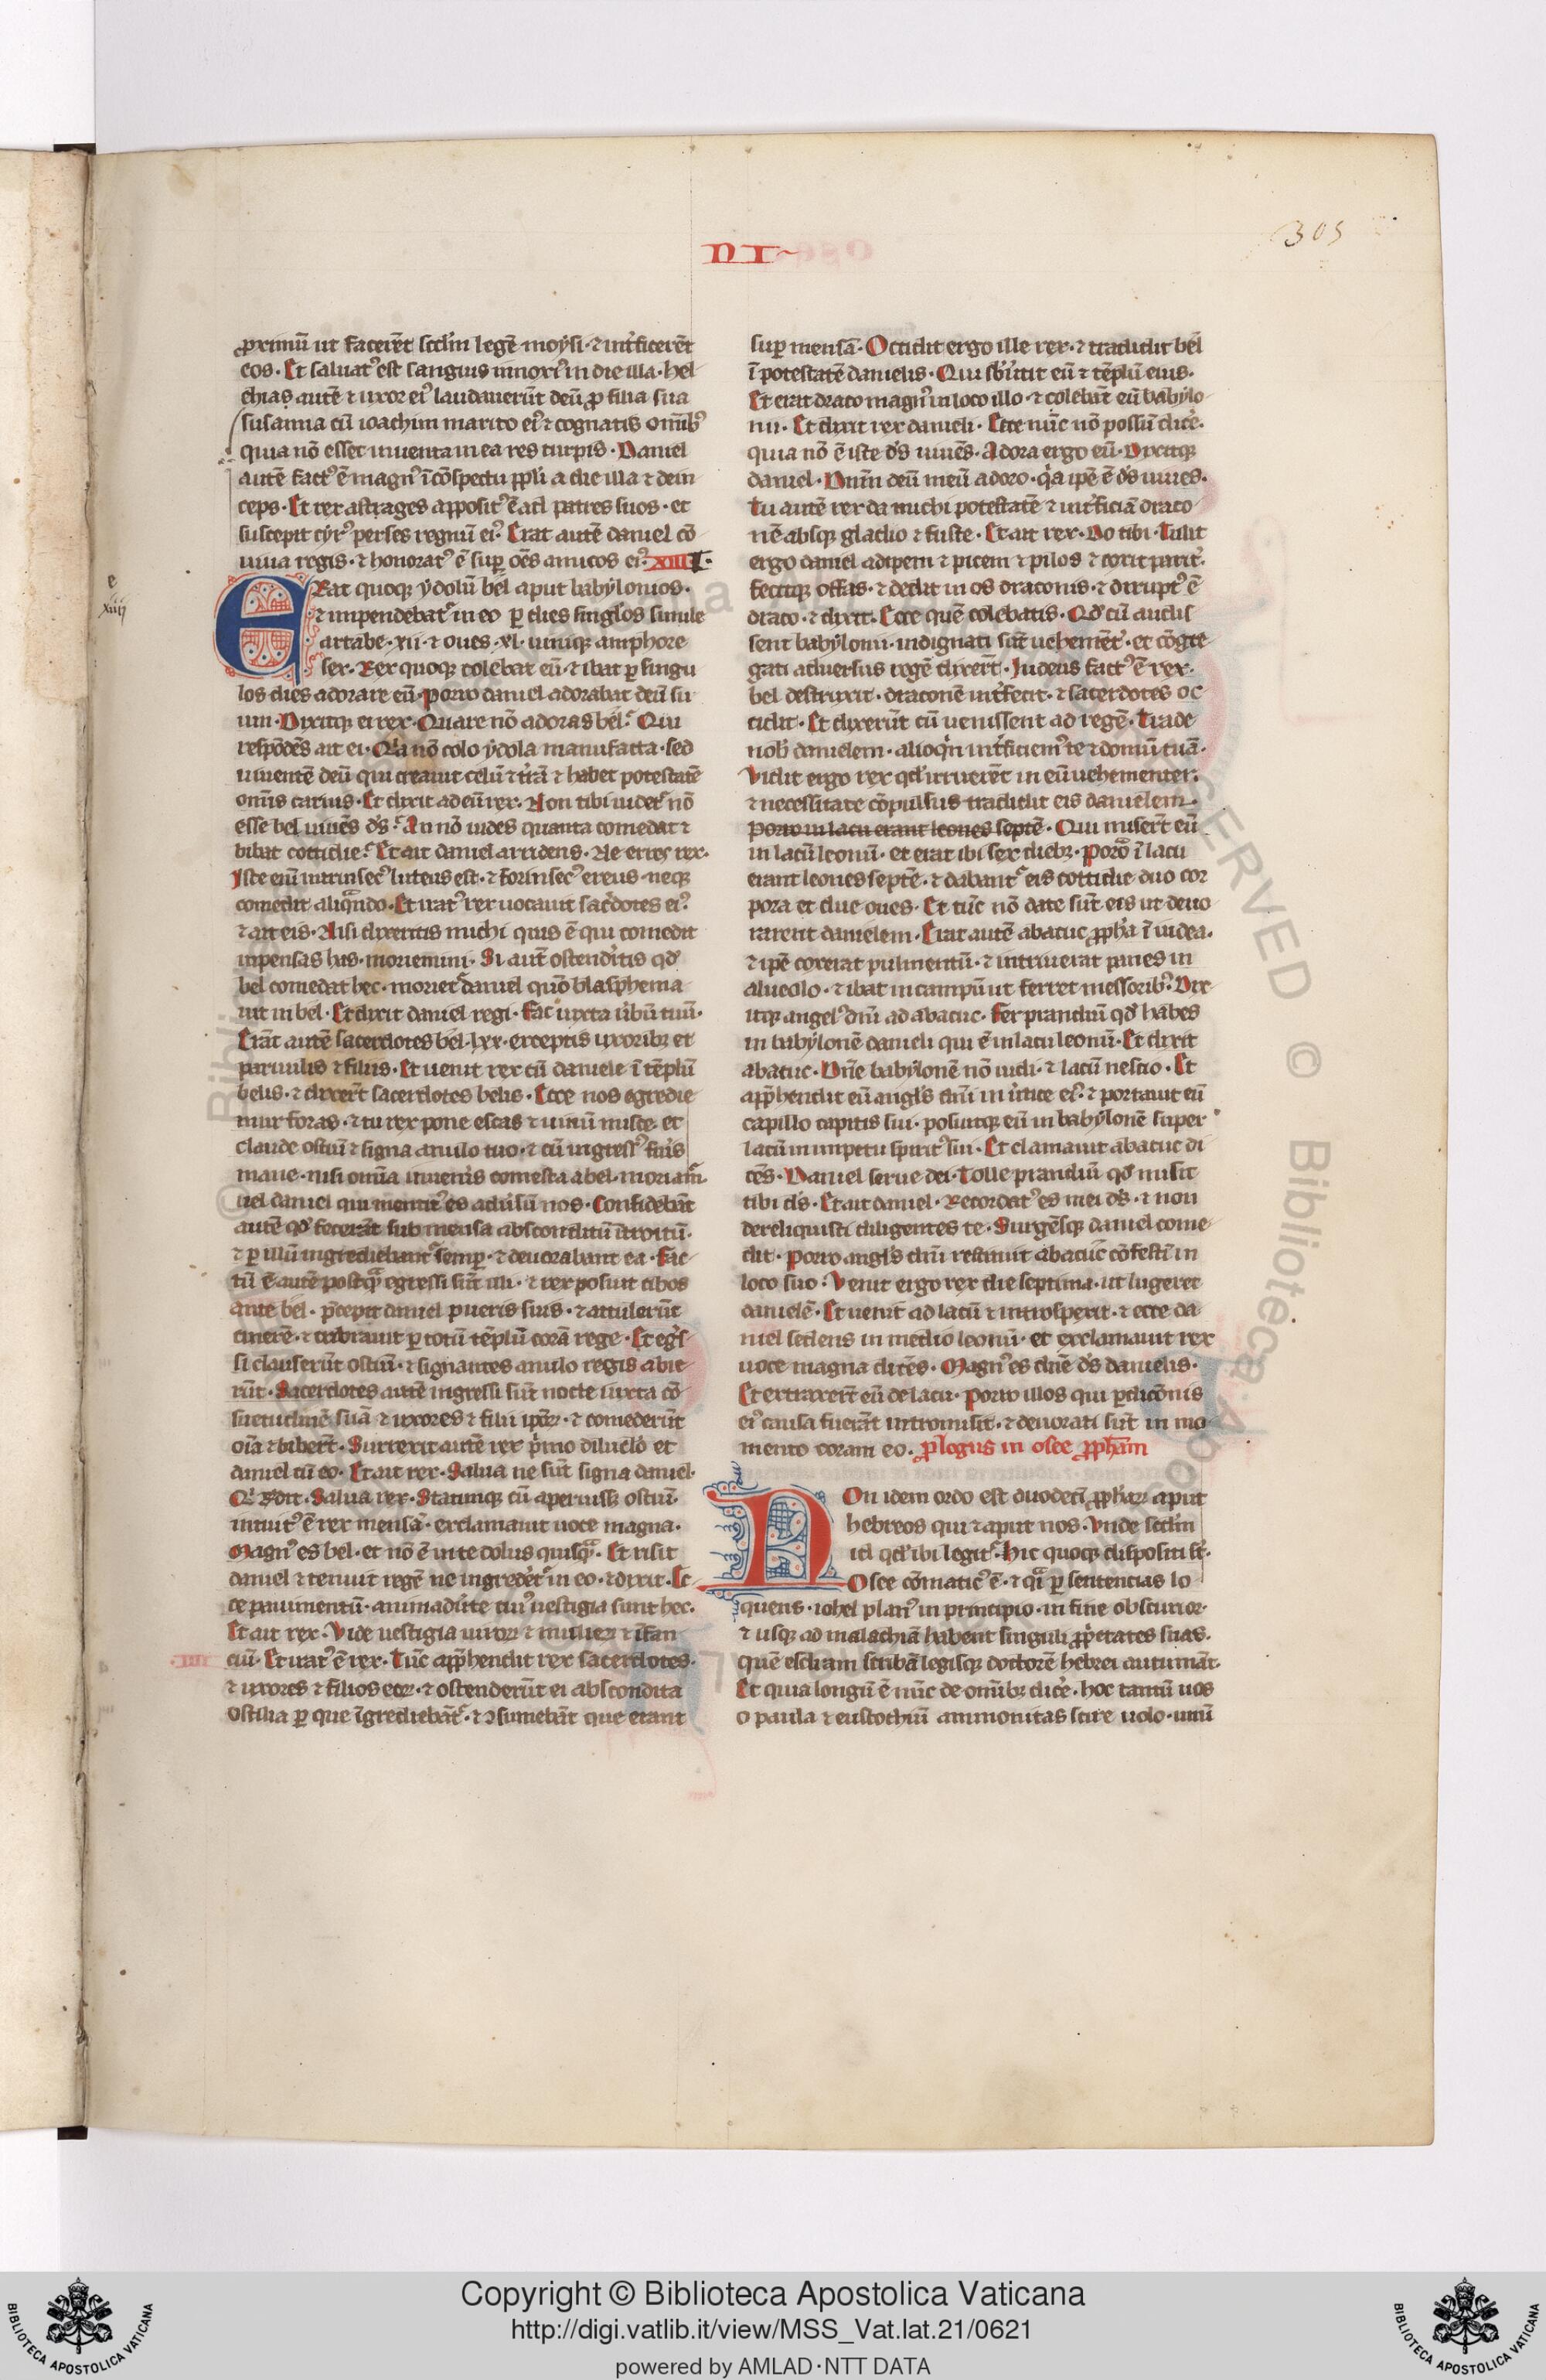 NI
305
ꝓximū ut facerēt scd̄m legē moysi ⁊ int̉ficerēt
eos. Et saluatꝰ est sanguis innoxiꝰ in die illa. hel
chias autē ⁊ uxor eiꝰ laudauerūt deū ꝓ filia sua
susanna cū ioachim marito eiꝰ ⁊ cognatis omībꝰ
quia nō esset inuenta in ea res turpis. Daniel
autē factꝰ ē magnꝰ ī cōspectu ppl̓i a die illa ⁊ dein
ceps. Et rex astrages appositꝰ ē ad patres suos. et
suscepit cyrꝰ perses regnū eiꝰ. Erat autē daniel cō
uiua regis. ⁊ honoratꝰ ē sup̱ oēs amicos eiꝰ. XIIII.
e
xiiij
ERat quoqꝫ ydolū bel aput babylonios.
⁊ impendebat᷑ in eo ꝑ dies singlos simile
artabe. xii. ⁊ oues. xl. uiniqꝫ amphore
sex. Rex quoqꝫ colebat eū. ⁊ ibat ꝑ singu
los dies adorare eū. Porro daniel adorabat deū su
um. Dixitqꝫ ei rex. Quare nō adoras bel. Qui
respōdēs ait ei. Qꝛa nō colo ydola manufacta. sed
uiuentē deū qui creauit celū ⁊ t̉rā ⁊ habet potestatē
omīs carnis. Et dixit ad eū rex. Non tibi uidet᷑ nō
esse bel uiuēs d̄s. An nō uides quanta comedat ⁊
bibat cottidie. Et ait daniel arridens. Ne erres rex.
Iste enī intrinsecꝰ luteus est. ⁊ forinsecꝰ ereus neqꝫ
comedit aliqᵃndo. Et iratꝰ rex uocauit sac̉dotes eiꝰ.
⁊ ait eis. Nisi dixeritis michi quis ē qui comedit
inpensas has. moriemini. Si aut̄ ostend̉itis qd̓
bel comedat hec. moriet᷑ daniel quō blasphema
uit in bel. Et dixit daniel regi. Fac iuxta u̓bū tuū.
Erāt autē sacerdotes bel. lxx. exceptis uxoribꝫ et
paruulis ⁊ filiis. Et uenit rex cū daniele ī tēplū
belis. ⁊ dixer̄t sacerdotes belis. Ecce nos egredie
mur foras. ⁊ tu rex pone escas ⁊ uinū misce. et
claude ostiū ⁊ signa anulo tuo. ⁊ cū ingressꝰ fu̓is
mane. nisi omīa inuen̓is comesta a bel. moriam᷑.
uel daniel qui mentitꝰ es adu̓sū nos. Confidebāt
autē qd̓ fecerāt sub mensa absconditū ītroitū.
⁊ ꝑ illū ingrediebant᷑ semꝑ. ⁊ deuorabant ea. Fac
tū ē autē postqᵃ̄ egressi sūt illi. ⁊ rex posuit cibos
ante bel. p̄cepit daniel pueris suis. ⁊ attulerūt
cinerē. ⁊ cribrauit ꝑ totū tēplū corā rege. Et eg̓s
si clauserūt ostiū. ⁊ signantes anulo regis abie
rūt. Sacerdotes autē ingressi sūt nocte iuxta cō
suetudinē suā ⁊ uxores ⁊ filii ipoꝝ. ⁊ comederūt
oīa ⁊ biber̄t. Surrexit autē rex p̓mo diluclo et
daniel cū eo. Et ait rex. Salua ne sūt signa daniel.
Q̓ r̄dit. Salua rex. Statimqꝫ cū aperuissꝫ ostiū.
intuitꝰ ē rex mensā. exclamauit uoce magna.
Magnꝰ es bel. et nō ē in te dolus quisqᵃ̄. Et risit
daniel ⁊ tenuit regē ne ingredēt᷑ in eo. ⁊ dixit. Ec
ce pauimentū. animadu̓te cuiꝰ uestigia sunt hec.
Et ait rex. Vide uestigia uiroꝝ ⁊ mulieꝝ ⁊ īfan
ciū. Et iratꝰ ē rex. Tūc appͬhendit rex sacerdotes.
⁊ uxores ⁊ filios eoꝝ. ⁊ ostenderūt ei abscondita
ostilia ꝑ que īgrediebāt᷑. ⁊ ꝯsumebāt que erant
sup̱ mensā. Occidit ergo ille rex. ⁊ tradidit bel
ī potestatē danielis. Qui sb̓u̓tit eū ⁊ tēplū eius.
Et erat draco magnꝰ in loco illo. ⁊ colebāt eū babylo
nii. Et dixit rex danieli. Ecce nūc nō possū dice̓.
quia nō ē iste d̓s uiuēs. Adora ergo eū. Dixitqꝫ
daniel. Dnm̄ deū meū adoro. qͥa ipē ē d̓s uiues.
Tu autē rex da michi potestatē ⁊ int̉ficiā draco
nē absqꝫ gladio ⁊ fuste. Et ait rex. Do tibi. Tulit
ergo daniel adipem ⁊ picem ⁊ pilos ⁊ coxit parit̉.
fecitqꝫ offas. ⁊ dedit in os draconis. ⁊ diruptꝰ ē
draco. ⁊ dixit. Ecce quē colebatis. Qd̓ cū audis
sent babylonii. indignati sūt uehemēt̉. et cōgre
gati aduersus regē dixer̄t. Iudeus factꝰ ē rex.
bel destruxit. draconē int̉fecit. ⁊ sacerdotes oc
cidit. Et dixerūt cū uenissent ad regē. Trade
nob̓ danielem. alioqͥn int̉ficiemꝰ te ⁊ domū tuā.
Vidit ergo rex qd̓ irruerēt in eū uehementer.
⁊ necessitate cōpulsus tradidit eis danielem.
Porro in lacu erant leones septē. Qui miser̄t eū
in lacū leonū. et erat ibi sex diebꝫ. Porro ī lacu
erant leones septē. ⁊ dabant᷑ eis cottidie duo cor
pora et due oues. Et tūc nō date sūt eis ut deuo
rarent danielem. Erat autē abacuc ꝓph̄a ī iudea.
⁊ ipē coxerat pulmentū. ⁊ intriuerat panes in
alueolo. ⁊ ibat in campū ut ferret messoribꝰ. Dix
itqꝫ angelꝰ dn̄i ad abacuc. Fer prandiū qd̓ habes
in babylonē danieli qui ē in lacu leonū. Et dixit
abacuc. Dn̄e babylonē nō uidi. ⁊ lacū nescio. Et
appͬhendit eū angl̓s dn̄i in u̓tice eiꝰ. ⁊ portauit eū
capillo capitis sui. posuitqꝫ eū in babylonē super
lacū in impetu spiritꝰ sui. Et clamauit abacuc di
cēs. Daniel serue dei. Tolle prandiū qd̓ misit
tibi d̓s. Et ait daniel. Recordatꝰ es mei ds̄. ⁊ non
dereliquisti diligentes te. Surgēsqꝫ daniel come
dit. Porro angl̓s dn̄i restituit abacuc cōfestī in
loco suo. Venit ergo rex die septima. ut lugeret
danielē. Et uenit ad lacū ⁊ introspexit. ⁊ ecce da
niel sedens in medio leonū. et exclamauit rex
uoce magna dicēs. Magnꝰ es dn̄e d̓s danielis.
Et extraxer̄t eū de lacu. Porro illos qui ꝑdicōnis
eiꝰ causa fuerāt intromisit. ⁊ deuorati sūt in mo
mento coram eo. p̓logus in osee ꝓph̄am
NOn idem ordo est duodecī ꝓph̄aꝝ aput
hebreos qui ⁊ aput nos. Vnde scd̄m
id qd̓ ibi legit᷑. hic quoqꝫ dispositi st̄.
Osee cōmaticꝰ ē. ⁊ qᵃi ꝑ sentencias lo
quens. iohel planꝰ in principio. in fine obscurior.
⁊ usqꝫ ad malachiā habent singuli ꝓp̓etates suas.
quē esdram scribā legisqꝫ doctorē hebrei autumāt.
Et quia longū ē nūc de omībꝫ dice̓. hoc tantū uos
o paula ⁊ eustochiū ammonitas scire uolo. unū
Copyright © Biblioteca Apostolica Vaticana
http://digi.vatlib.it/view/MSS_Vat.lat.21/0621
powered by AMLAD·NTT DATA
BIBLIOTECA APOSTOLICA VATICANA
BIBLIOTECA APOSTOLICA VATICANA